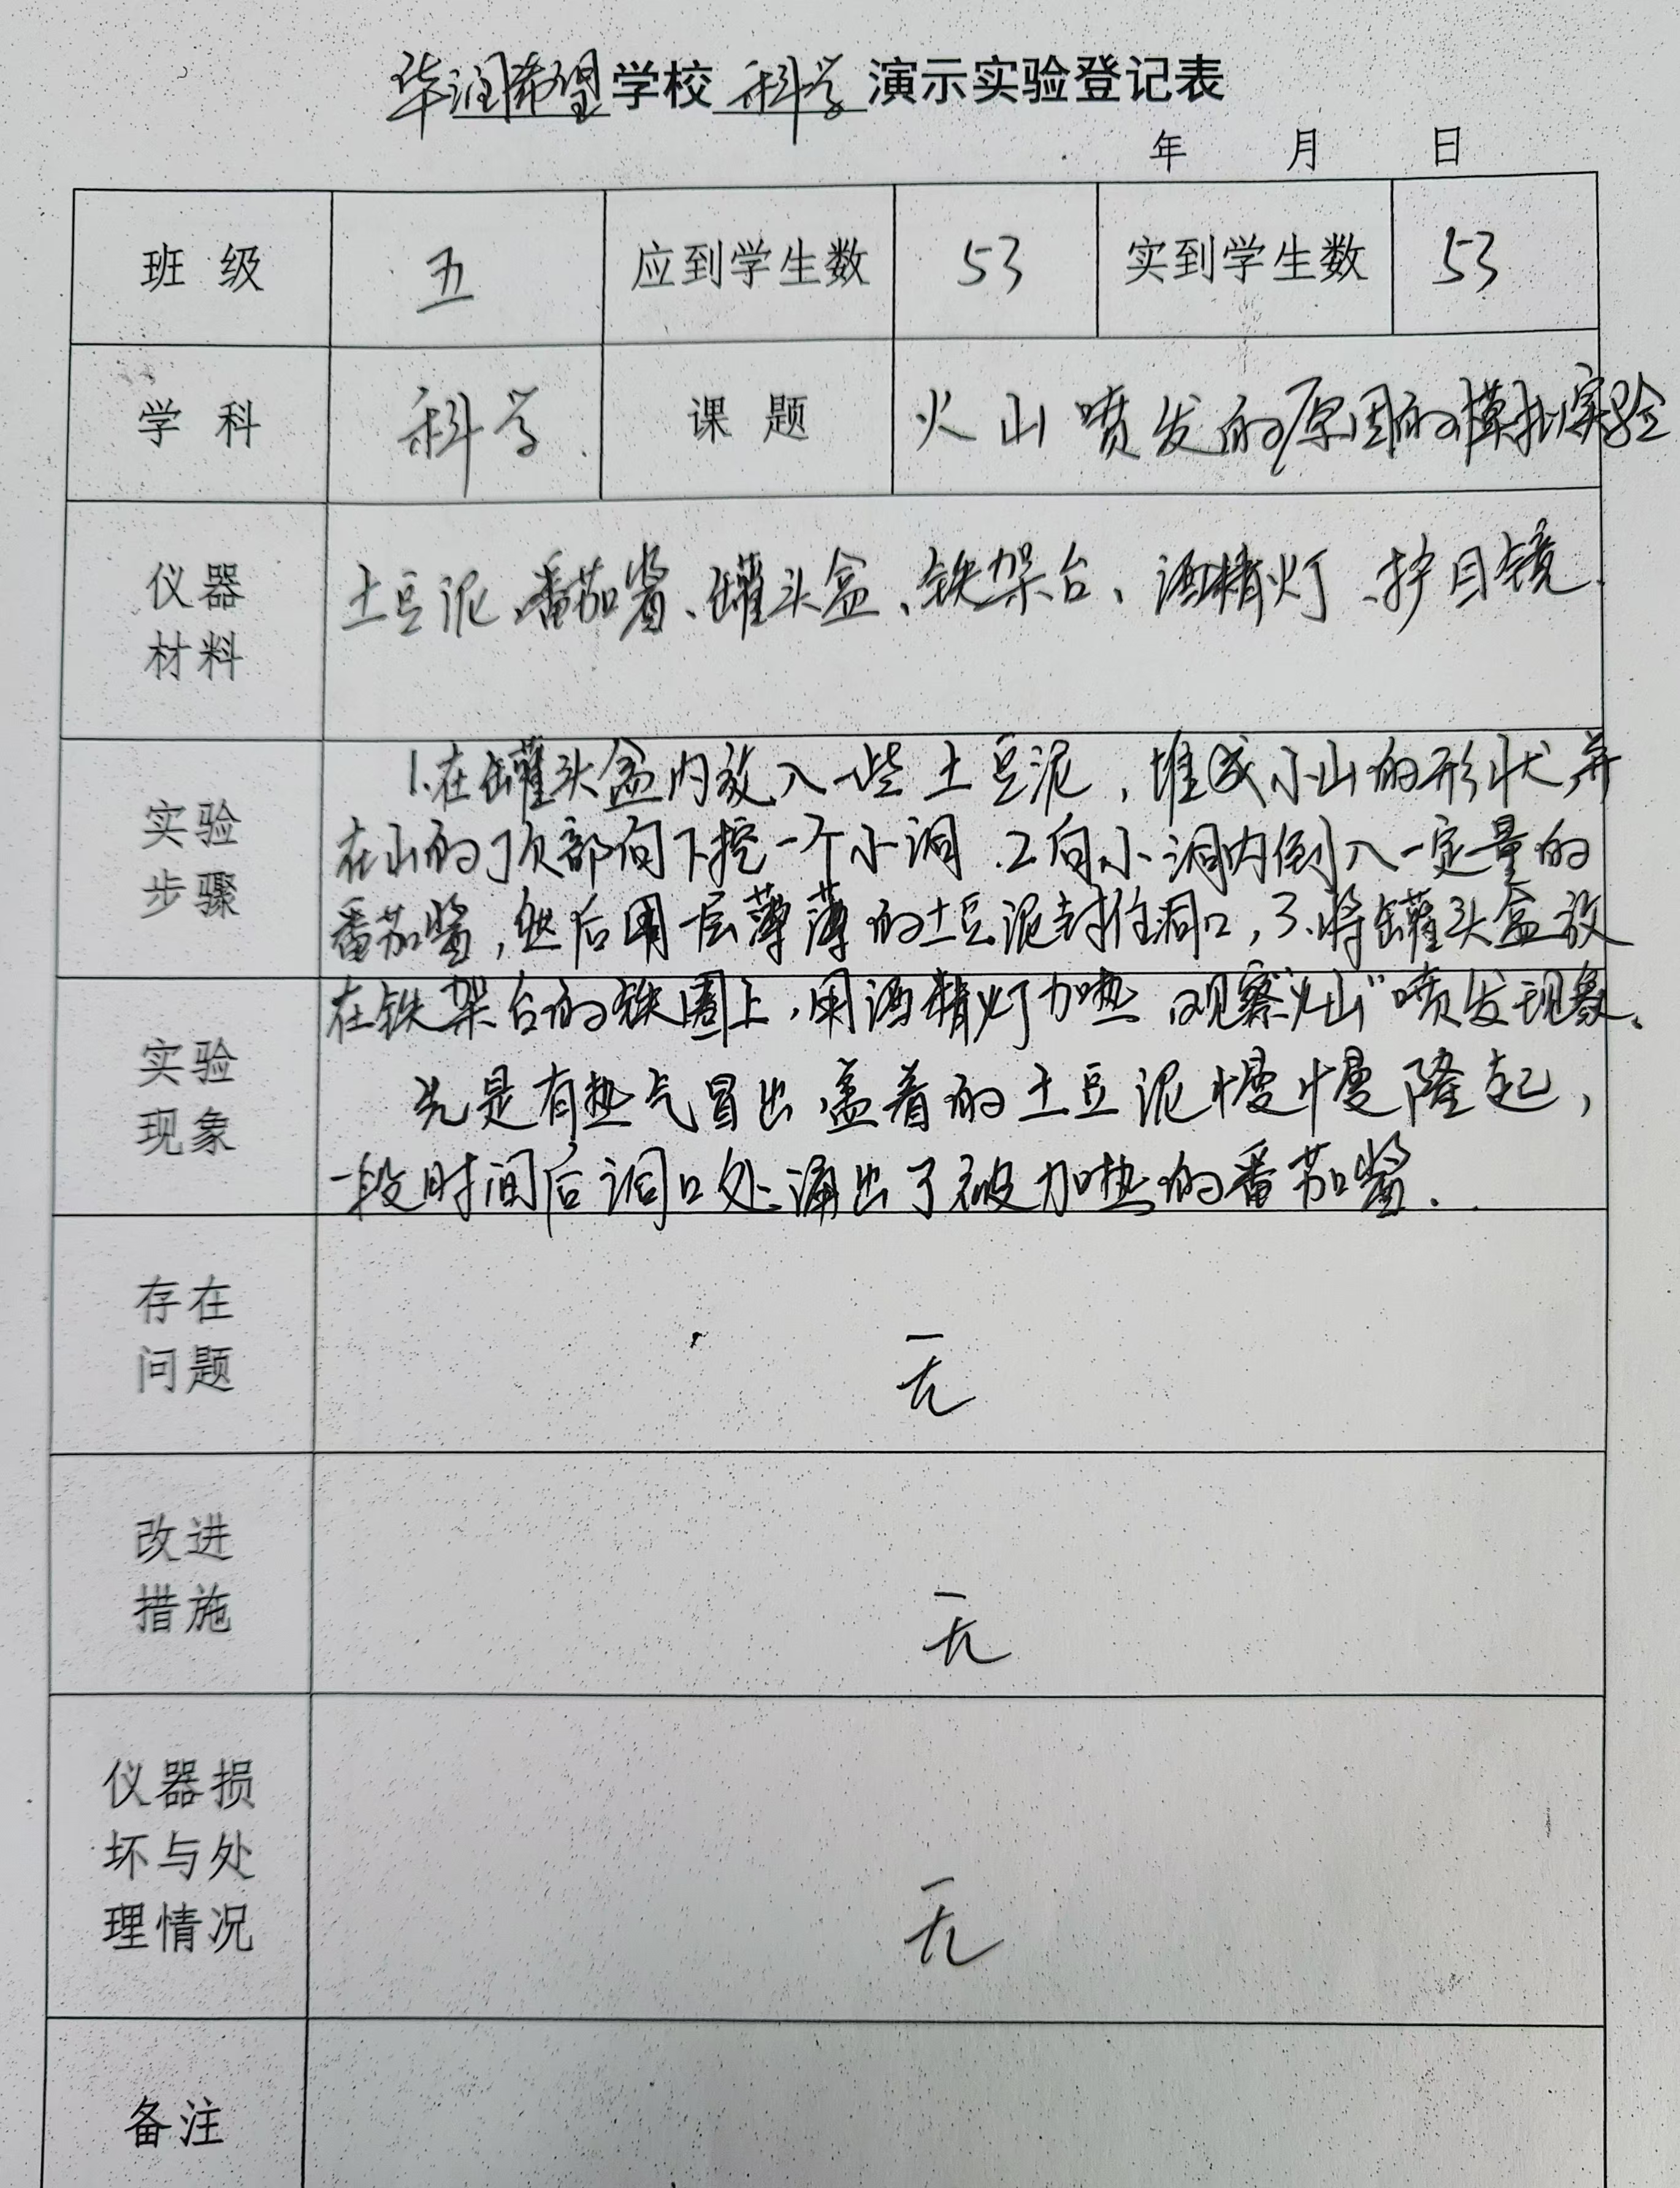 华润希望学校科学演示实验登记表
年 月 日
班级 五 应到学生数 53 实到学生数 53
学科 科学 课题 火山喷发的原因的模拟实验
仪器
材料
土豆泥、番茄酱、罐头盒、铁架台、酒精灯、护目镜.
实验
步骤
1.在罐头盒内放入一些土豆泥,堆成小山的形状并
在山的顶部向下挖一个小洞.2向小洞内倒入一定量的
番茄酱,然后用一层薄薄的土豆泥封住洞口,3、将罐头盒放
在铁架台的铁圈上,用酒精灯加热 观察“火山”喷发现象。
实验
现象
先是有热气冒出,盖着的土豆泥慢慢隆起,
一段时间后洞口处涌出了被加热的番茄酱.
存在
问题
无
改进
措施
无
仪器损
坏与处
理情况
无
备注